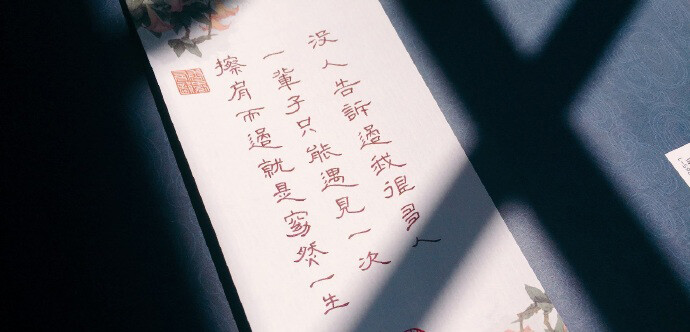 没人告訴過我很多人
一輩子只能遇見一次
擦肩而過就是窮然一生